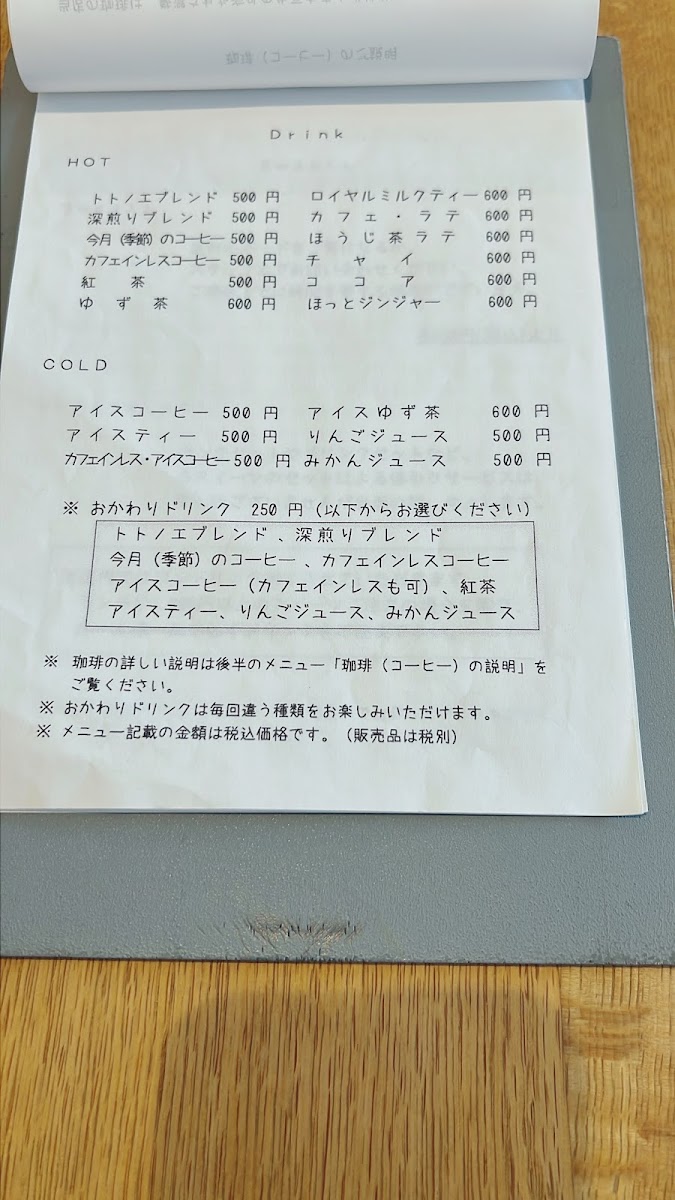 Drink
HOT
トトノエブレンド 500 円 ロイヤルミルクティー 600 円
深煎りブレンド 500 円 カフェ・ラテ 600 円
今月（季節）のコーヒー 500 円 ほうじ茶ラテ 600 円
カフェインレスコーヒー 500 円 チャイ 600 円
紅茶 500 円 ココア 600 円
ゆず茶 600 円 ほっとジンジャー 600 円
COLD
アイスコーヒー 500 円 アイスゆず茶 600 円
アイスティー 500 円 りんごジュース 500 円
カフェインレス・アイスコーヒー 500 円 みかんジュース 500 円
※ おかわりドリンク 250 円（以下からお選びください）
トトノエブレンド、深煎りブレンド
今月（季節）のコーヒー、カフェインレスコーヒー
アイスコーヒー（カフェインレスも可）、紅茶
アイスティー、りんごジュース、みかんジュース
※ 珈琲の詳しい説明は後半のメニュー「珈琲（コーヒー）の説明」を
ご覧ください。
※ おかわりドリンクは毎回違う種類をお楽しみいただけます。
※ メニュー記載の金額は税込価格です。（販売品は税別）